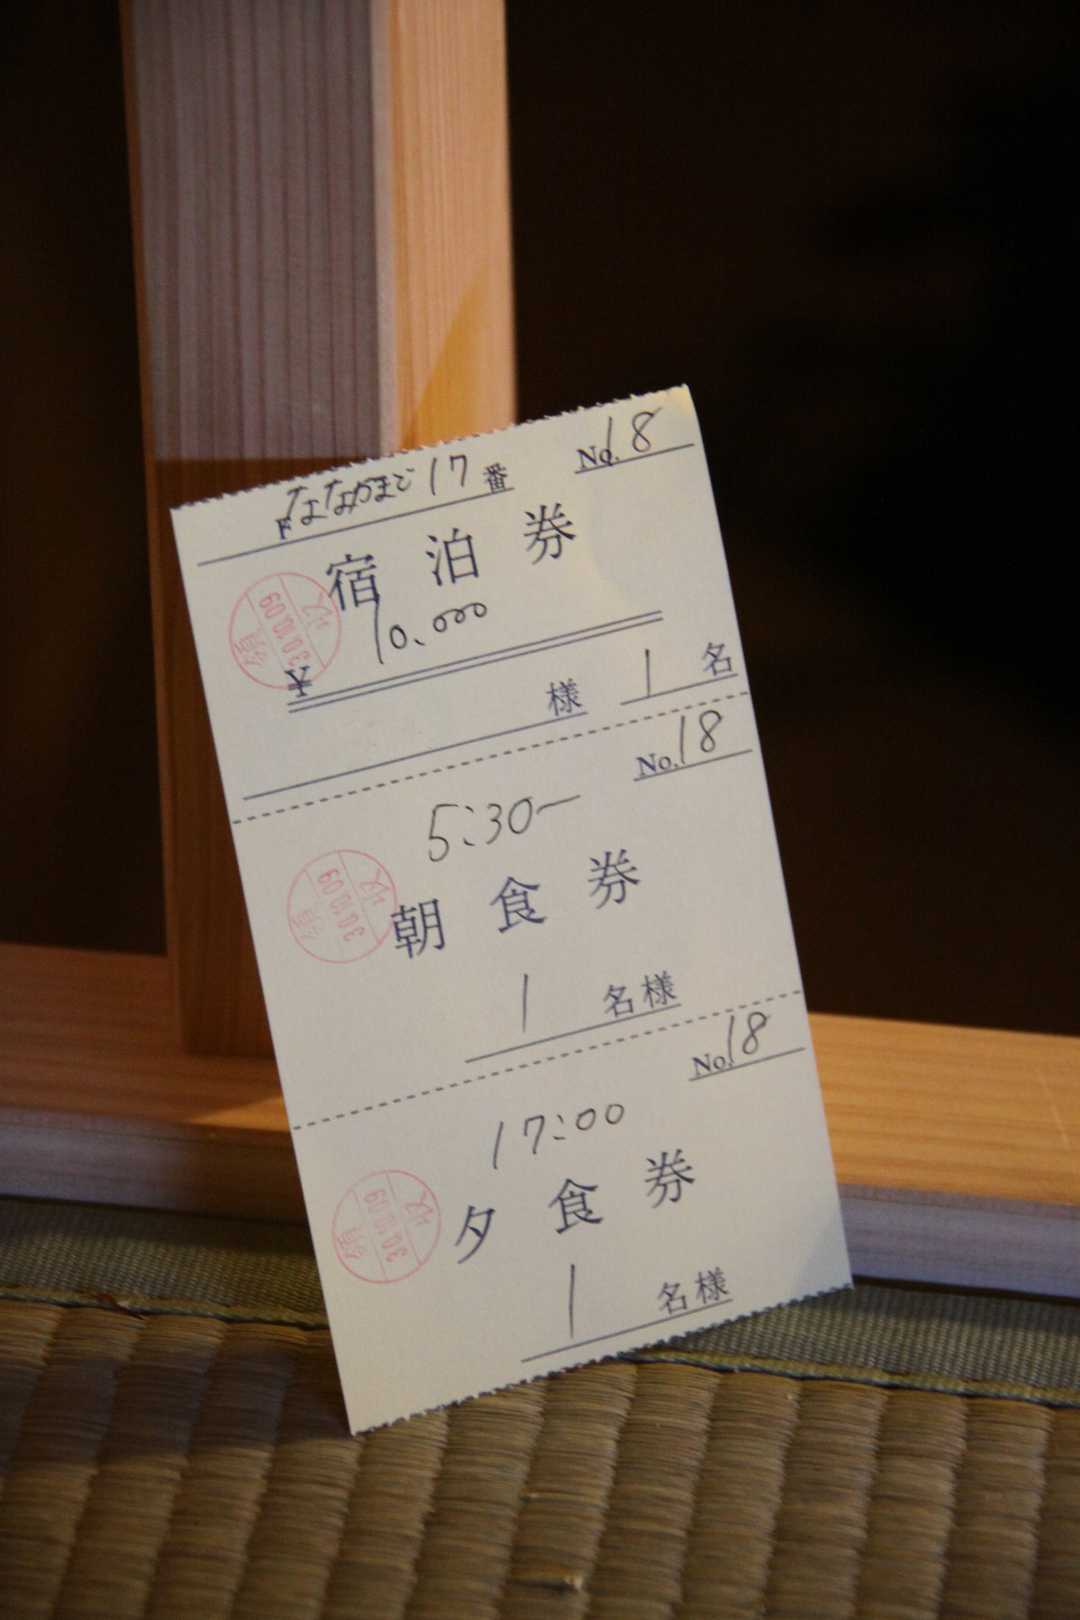 No. 18
ななかまど 17 番
宿泊券
領 30.10.09 収
¥ 10.000
様 1 名
No. 18
5:30~
朝食券
領 30.10.09 収
1 名様
No. 18
17:00
夕食券
領 30.10.09 収
1 名様